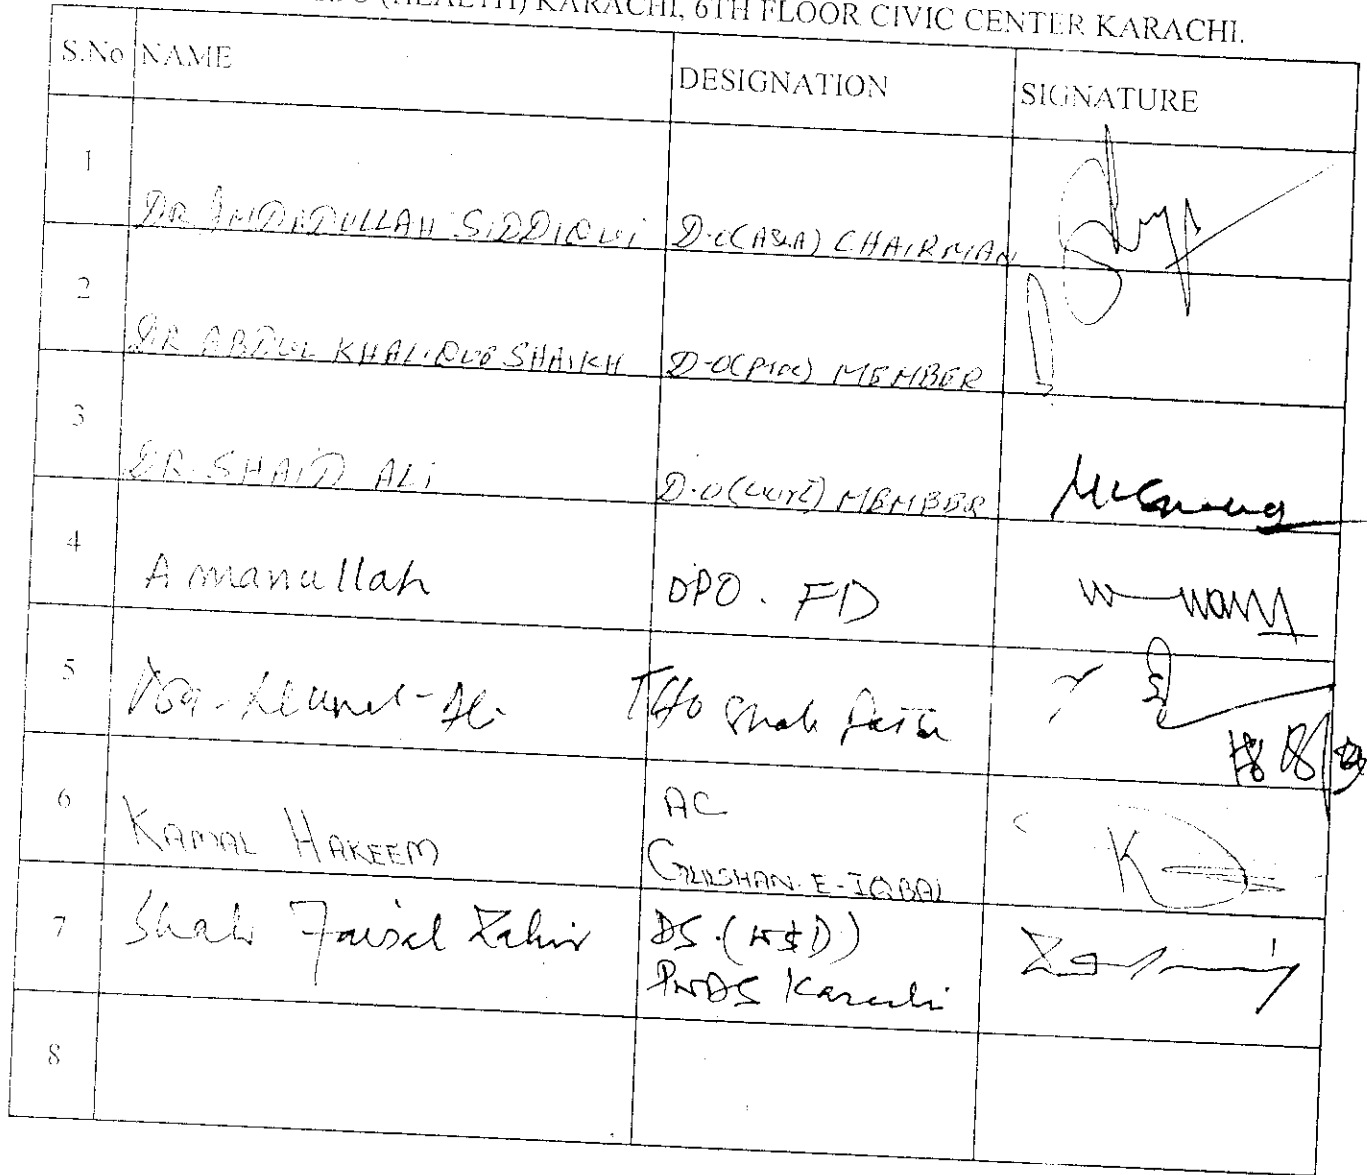 (HEALTH) KARACHI, 6TH FLOOR CIVIC CENTER KARACHI.
S.No NAME DESIGNATION SIGNATURE
1 DR IMDADULLAH SIDDIQUI D.O(A&A) CHAIRMAN
2 DR ABDUL KHALIQUE SHAIKH MEMBER
3 DR. SHAID ALI MEMBER
4 Amanullah DPO. FD
5 THO Shah
6 KAMAL HAKEEM AC
GULSHAN-E-IQBAL
7 Shah Faisal Zahir DS.
Karachi
8